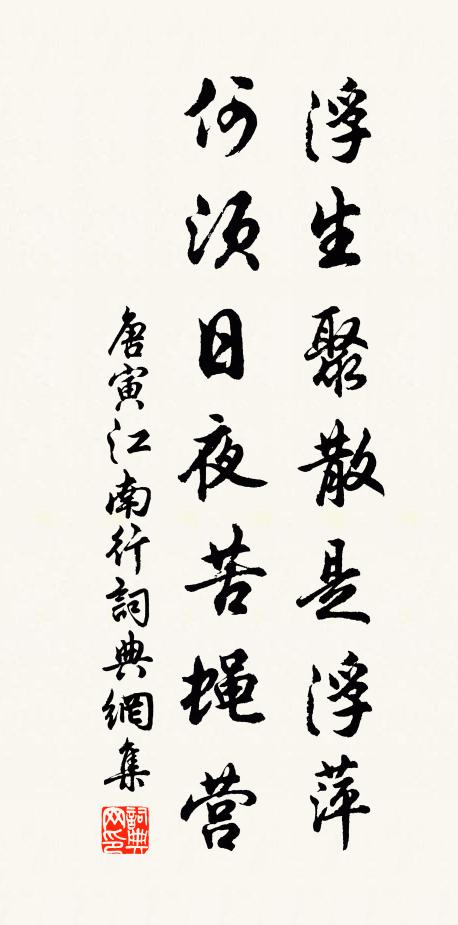 浮生聚散是浮萍
何须日夜苦蝇营
唐寅江南行詞典網集
詞典网印